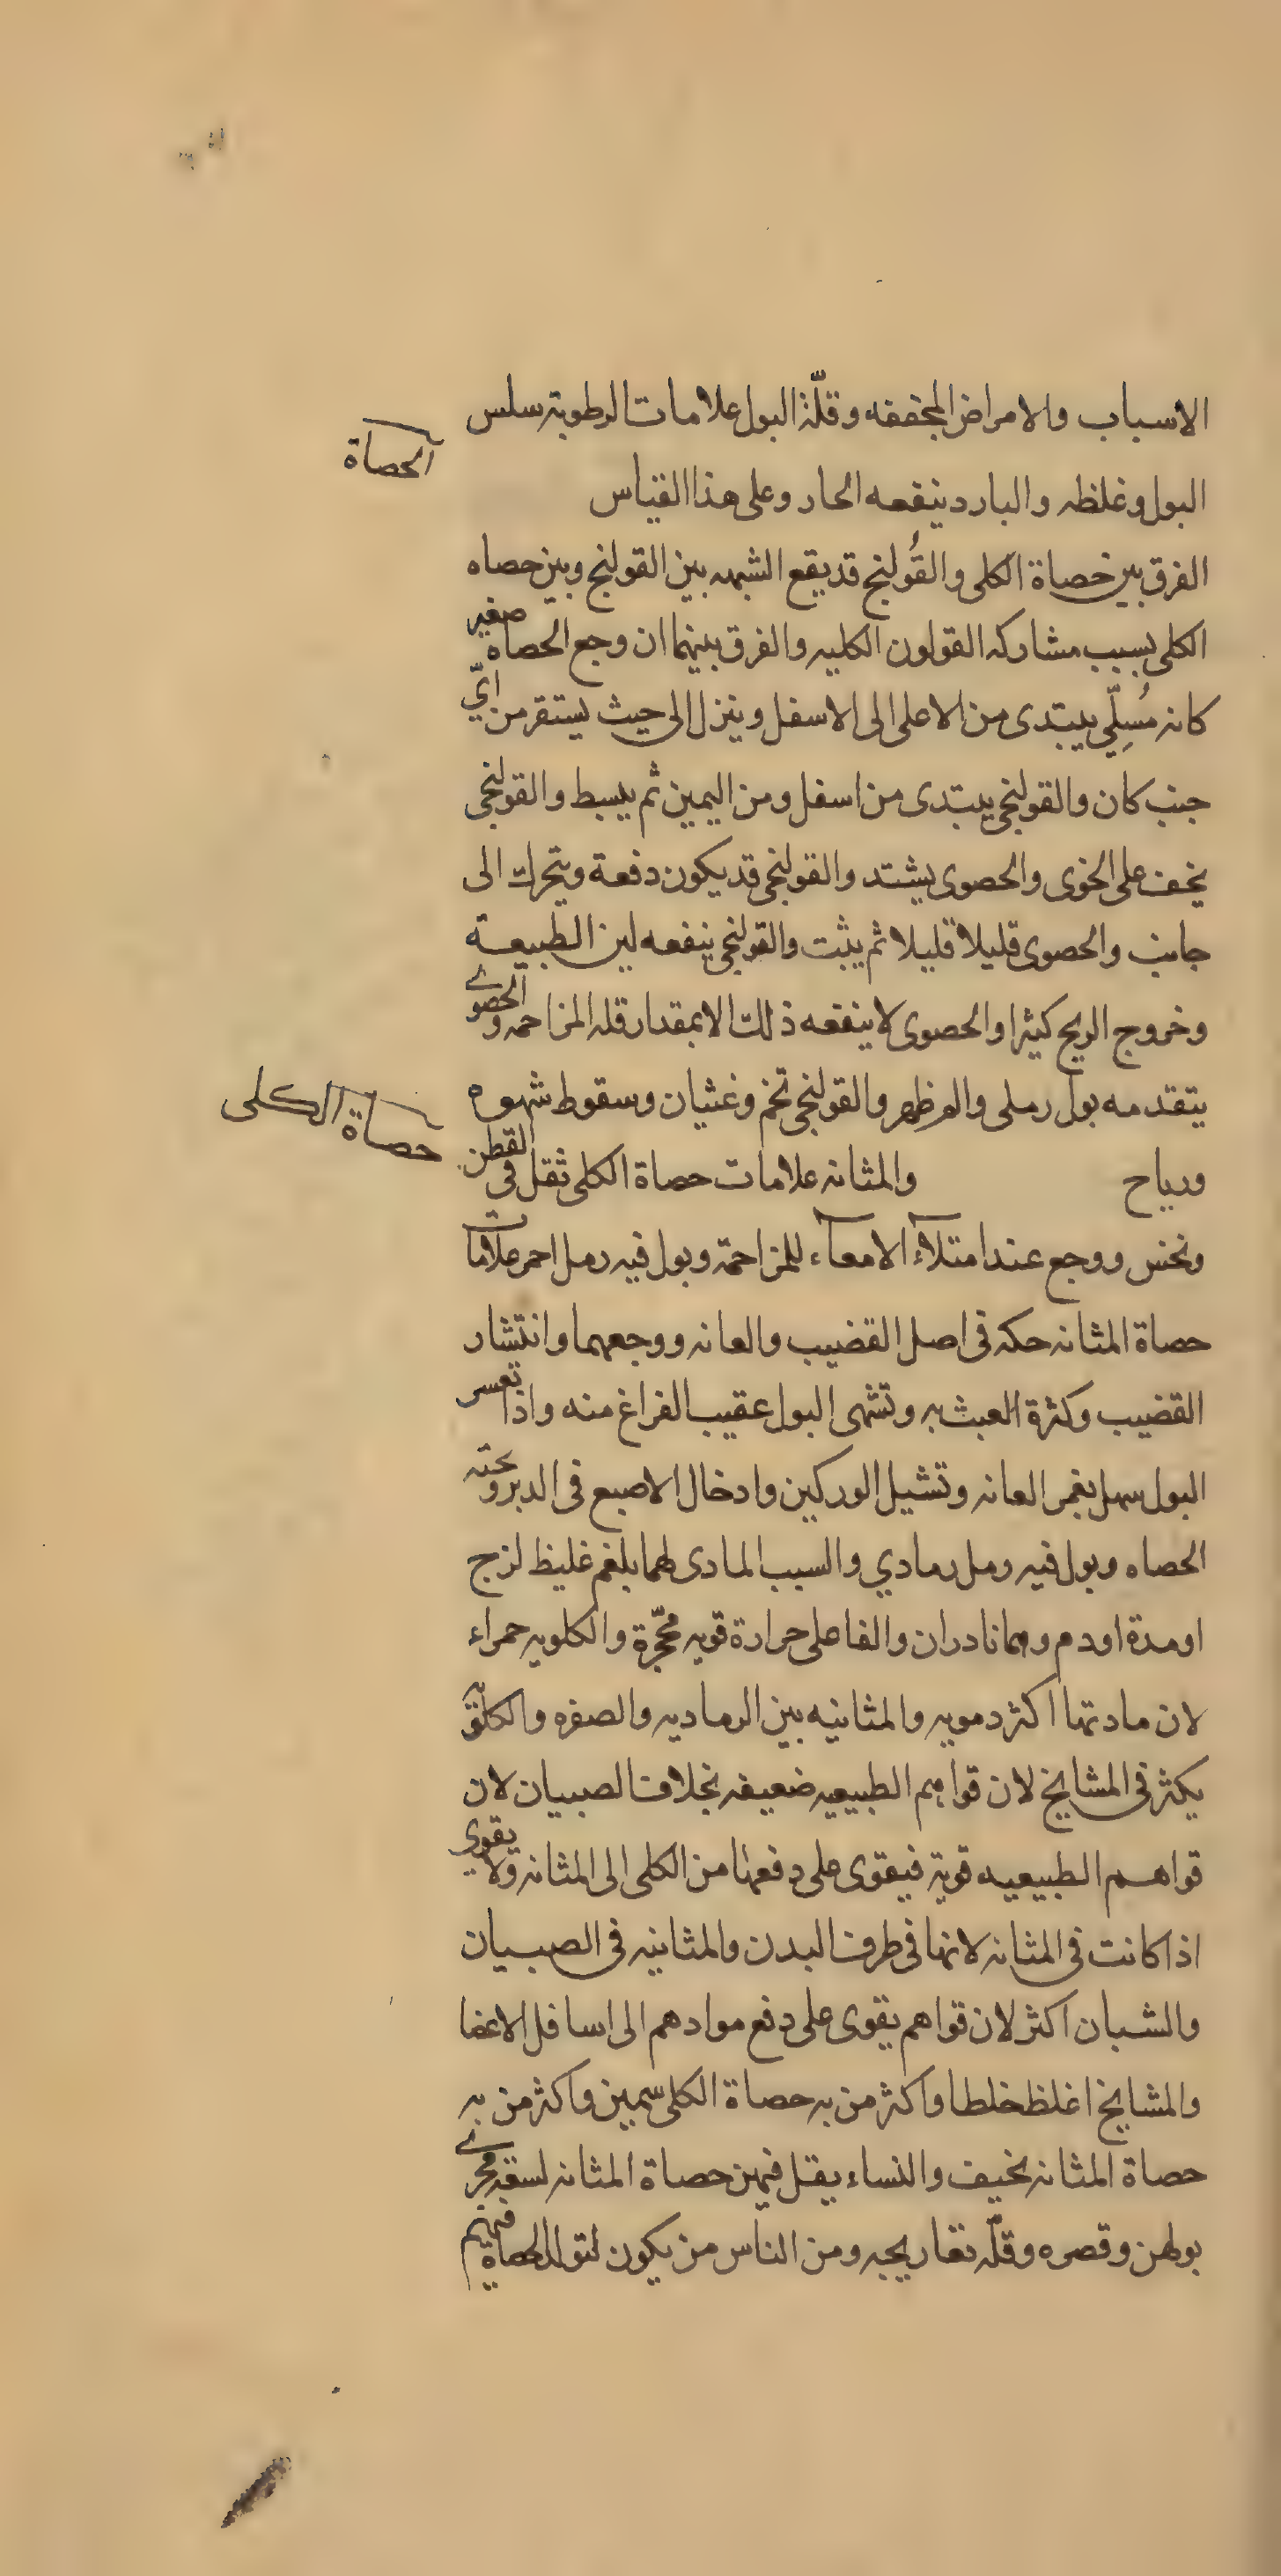 الاسباب والامراض المجففه وقلّة البول علامات الرطوبة سلس
الحصاة
البول وغلظه والبارد ينفعه الحار وعلى هذا القياس
الفرق بين حصاة الكلى والقُولنج قد يقع الشبهه بين القولنج وبين حصاه
الكلى بسبب مشاركه القولون الكليه والفرق بينهما ان وجع الحصاه صغير
كانه مُسِلّي يبتدى من الاعلى الى الاسفل وينزل الى حيث يستقر من ايّ
جنب كان والقولنجى يبتدى من اسفل ومن اليمين ثم ينبسط والقولنجى
يخف على الخوى والحصوى يشتد والقولنجى قد يكون دفعة ويتحرك الى
جانب والحصوى قليلا قليلا ثم يثبت والقولنجى ينفعه لين الطبيعة
وخروج الريح كثيرا والحصوى لا ينفعه ذلك الا بمقدار قله المزاحمه والحصوى
يتقدمه بول رملى والم ظهر والقولنجى تخم وغثيان وسقوط شهوه
حصاة الكلى
ورياح والمثانه علامات حصاة الكلى ثقل فى القطن
ونخس ووجع عند امتلآء الامعآء للمزاحمة وبول فيه رمل احمر علامات
حصاة المثانه حكه فى اصل القضيب والعانه ووجعهما وانتشار
القضيب وكثرة العبث به وتشهى البول عقيب الفراغ منه واذا تعسر
البول سهل بغمز العانه وتشيل الوركين وادخال الاصبع فى الدبر وتنحيته
الحصاه وبول فيه رمل رمادي والسبب المادى لهما بلغم غليظ لزج
او مدة او دم وهما نادران والفاعلى حرارة قويه محجّرة والكلويه حمراء
لان مادتها اكثر دمويه والمثانيه بين الرماديه والصفره والكلويه
يكثر فى المشايخ لان قواهم الطبيعيه ضعيفه بخلاف الصبيان لان
قواهم الطبيعيه قوية فيقوى على دفعها من الكلى الى المثانه ولا يقوى
اذا كانت فى المثانه لانها فى طرف البدن والمثانيه فى الصبيان
والشبان اكثر لان قواهم يقوى على دفع موادهم الى اسافل الاعضا
والمشايخ اغلظ خلطا واكثر من به حصاة الكلى سمين واكثر من به
حصاة المثانه نحيف والنساء يقل فيهن حصاة المثانه لسعة مجرى
بولهن وقصره وقلّه تعاريجه ومن الناس من يكون لتولد الحصاة فيهم